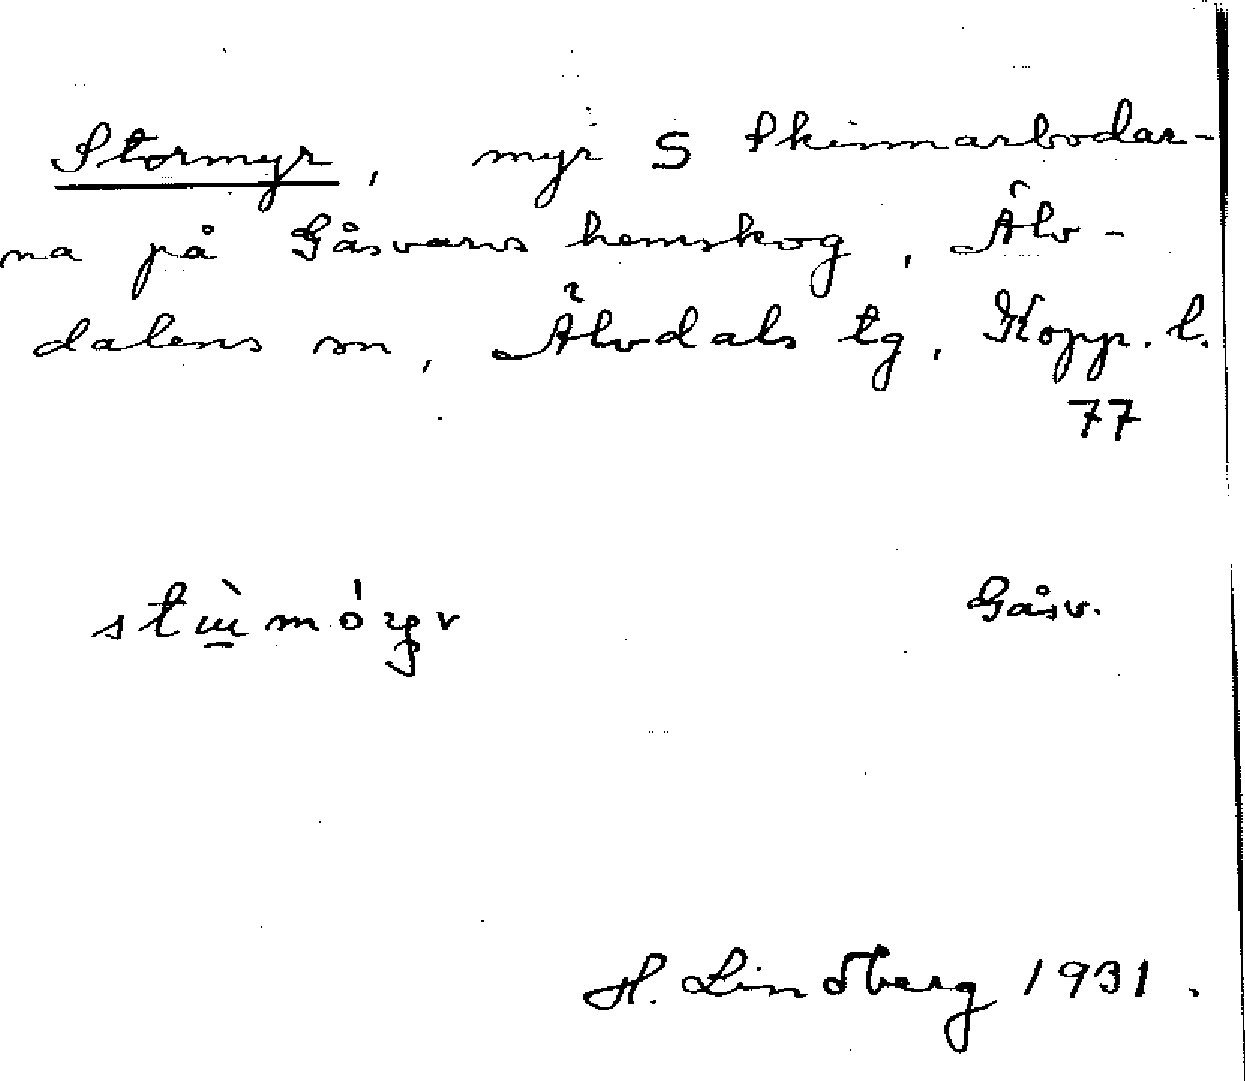 Stormyr, myr S Skinnarbodar-
na på Gåsvarvs hemskog, Älv-
dalens sn, Älvdals tg, Kopp. l.
77
Gåsv.
H. Lindberg 1931.